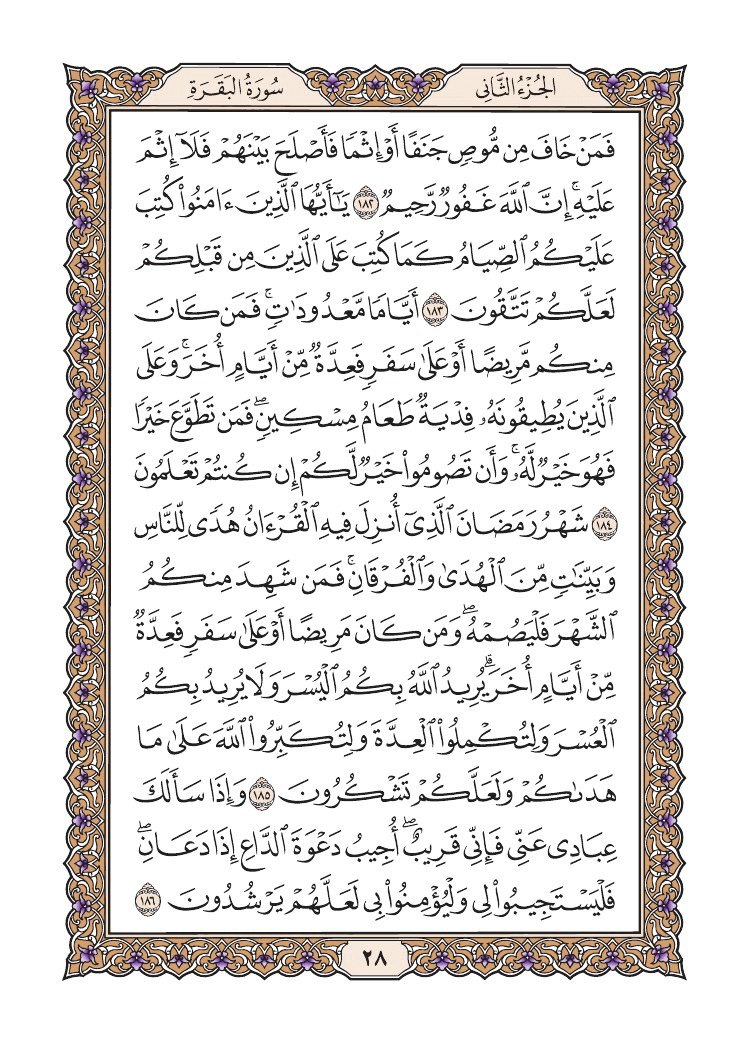 الجُزْءُ الثَّانِى
سُورَةُ البَقَرَةِ
فَمَنْ خَافَ مِن مُّوصٍ جَنَفًا أَوْ إِثْمًا فَأَصْلَحَ بَيْنَهُمْ فَلَآ إِثْمَ
عَلَيْهِ ۚ إِنَّ ٱللَّهَ غَفُورٌ رَّحِيمٌ ١٨٢ يَـٰٓأَيُّهَا ٱلَّذِينَ ءَامَنُوا۟ كُتِبَ
عَلَيْكُمُ ٱلصِّيَامُ كَمَا كُتِبَ عَلَى ٱلَّذِينَ مِن قَبْلِكُمْ
لَعَلَّكُمْ تَتَّقُونَ ١٨٣ أَيَّامًا مَّعْدُودَٰتٍ ۚ فَمَن كَانَ
مِنكُم مَّرِيضًا أَوْ عَلَىٰ سَفَرٍ فَعِدَّةٌ مِّنْ أَيَّامٍ أُخَرَ ۚ وَعَلَى
ٱلَّذِينَ يُطِيقُونَهُۥ فِدْيَةٌ طَعَامُ مِسْكِينٍ ۖ فَمَن تَطَوَّعَ خَيْرًا
فَهُوَ خَيْرٌ لَّهُۥ ۚ وَأَن تَصُومُوا۟ خَيْرٌ لَّكُمْ إِن كُنتُمْ تَعْلَمُونَ
١٨٤ شَهْرُ رَمَضَانَ ٱلَّذِىٓ أُنزِلَ فِيهِ ٱلْقُرْءَانُ هُدًى لِّلنَّاسِ
وَبَيِّنَـٰتٍ مِّنَ ٱلْهُدَىٰ وَٱلْفُرْقَانِ ۚ فَمَن شَهِدَ مِنكُمُ
ٱلشَّهْرَ فَلْيَصُمْهُ ۖ وَمَن كَانَ مَرِيضًا أَوْ عَلَىٰ سَفَرٍ فَعِدَّةٌ
مِّنْ أَيَّامٍ أُخَرَ ۗ يُرِيدُ ٱللَّهُ بِكُمُ ٱلْيُسْرَ وَلَا يُرِيدُ بِكُمُ
ٱلْعُسْرَ وَلِتُكْمِلُوا۟ ٱلْعِدَّةَ وَلِتُكَبِّرُوا۟ ٱللَّهَ عَلَىٰ مَا
هَدَىٰكُمْ وَلَعَلَّكُمْ تَشْكُرُونَ ١٨٥ وَإِذَا سَأَلَكَ
عِبَادِى عَنِّى فَإِنِّى قَرِيبٌ ۖ أُجِيبُ دَعْوَةَ ٱلدَّاعِ إِذَا دَعَانِ ۖ
فَلْيَسْتَجِيبُوا۟ لِى وَلْيُؤْمِنُوا۟ بِى لَعَلَّهُمْ يَرْشُدُونَ ١٨٦
٢٨